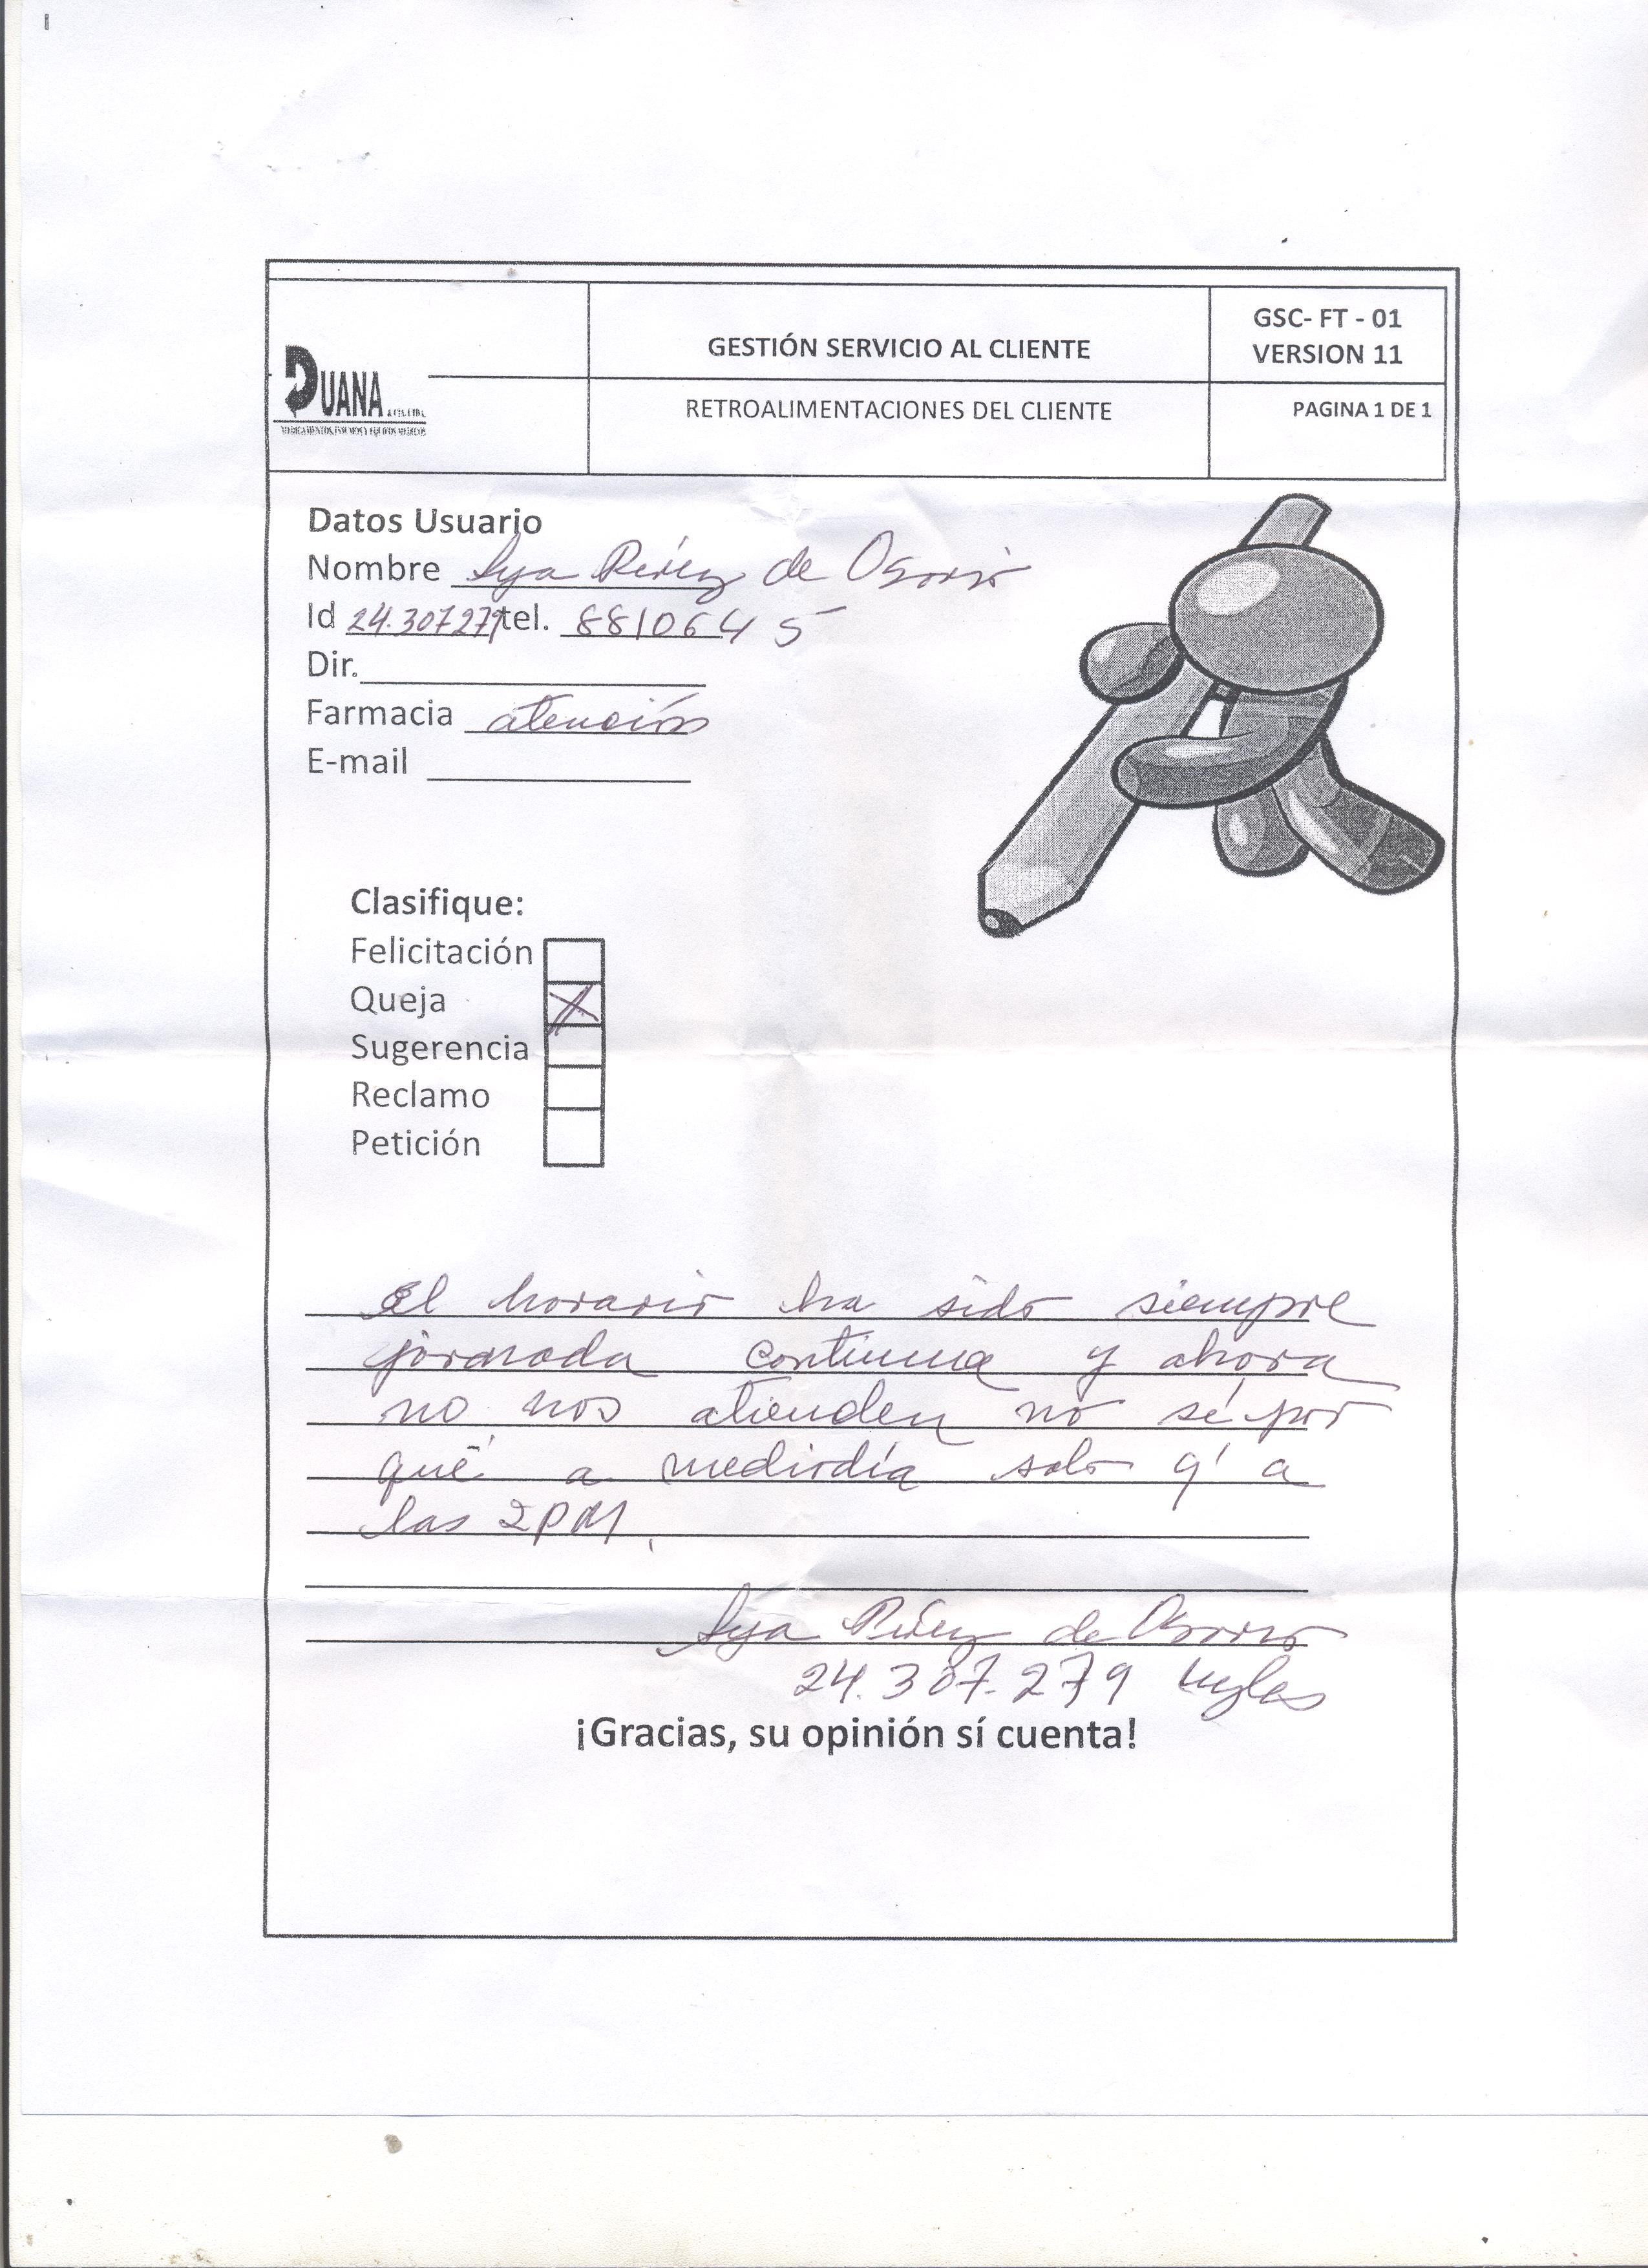 GESTIÓN SERVICIO AL CLIENTE
GSC- FT - 01
VERSION 11
DUANA
RETROALIMENTACIONES DEL CLIENTE
PAGINA 1 DE 1
Datos Usuario
Nombre Pérez de Osorio
Id 24.307279 tel. 8810645
Dir.
Farmacia atención
E-mail
Clasifique:
Felicitación
Queja X
Sugerencia
Reclamo
Petición
El horario ha sido siempre
jornada continua y ahora
no nos atienden no sé por
qué a mediodía solo q' a
las 2PM.
Pérez de Osorio
24.307.279
¡Gracias, su opinión sí cuenta!